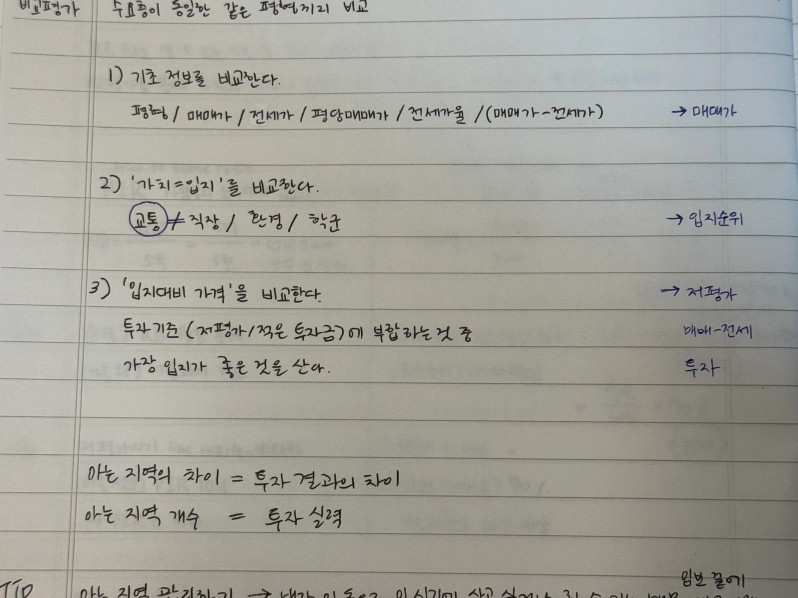 비교평가 수요층이 동일한 같은 평형끼리 비교
1) 기초 정보를 비교한다.
평형 / 매매가 / 전세가 / 평당매매가 / 전세가율 / (매매가-전세가) → 매매가
2) '가치=입지'를 비교한다.
교통 ≠ 직장 / 환경 / 학군 → 입지순위
3) '입지대비 가격'을 비교한다. → 저평가
투자기준 (저평가/적은 투자금)에 부합하는것 중 매매-전세
가장 입지가 좋은 것을 산다. 투자
아는 지역의 차이 = 투자 결과의 차이
아는 지역 개수 = 투자 실력
임보 끝에
TIP 아는 지역 관리하기 →